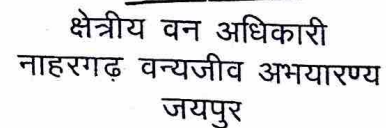 क्षेत्रीय वन अधिकारी
नाहरगढ़ वन्यजीव अभयारण्य
जयपुर